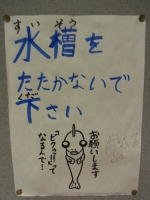 すい そう
水槽を
たたかないで
くだ
下さい
お願いします
ビクゥ!!って
なるんで…